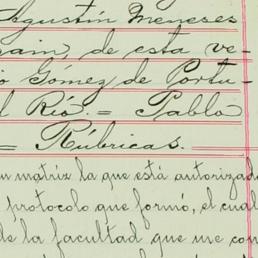 Agustín Meneses
gain, de esta ve-
o Gómez de Portu-
l Río. = Pablo
= Rúbricas.
n matriz la que está autorizada
protocolo que formó, el cual
de la facultad que me con